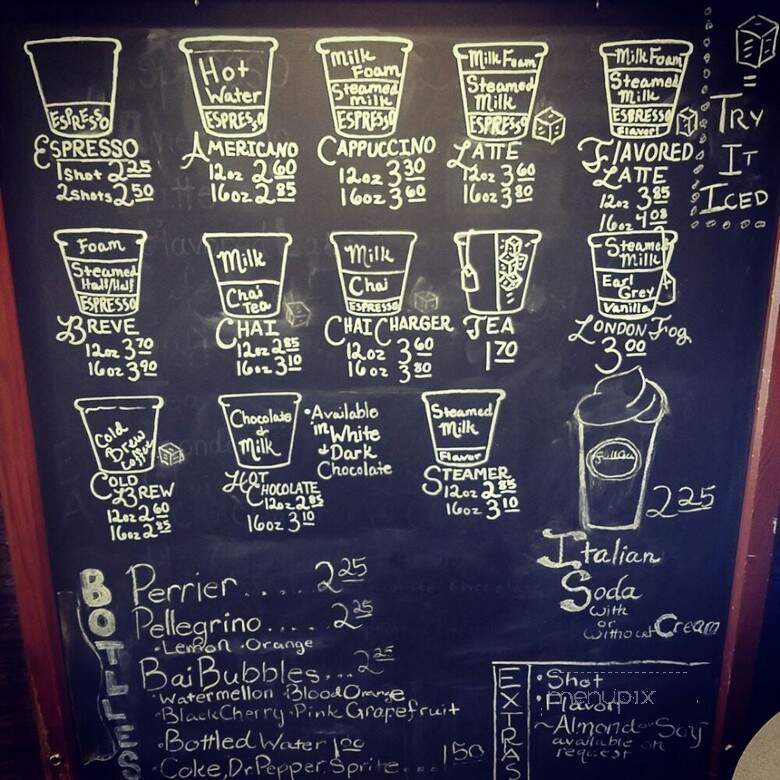 ESPRESSO
ESPRESSO
1 shot 2.25
2 shots 2.50
Hot
Water
ESPRESSO
AMERICANO
12oz 2.60
16oz 2.85
Milk
Foam
Steamed
Milk
ESPRESSO
CAPPUCCINO
12oz 3.30
16oz 3.60
Milk Foam
Steamed
Milk
ESPRESSO
LATTE
12oz 3.60
16oz 3.80
Milk Foam
Steamed
Milk
ESPRESSO
Flavor
FLAVORED
LATTE
12oz 3.85
16oz 4.08
=
TRY
IT
ICED
Foam
Steamed
Half/Half
ESPRESSO
BREVE
12oz 3.70
16oz 3.90
Milk
Chai
Tea
CHAI
12oz 2.85
16oz 3.10
Milk
Chai
ESPRESSO
CHAI CHARGER
12oz 3.60
16oz 3.80
TEA
1.70
Steamed
Milk
Earl
Grey
Vanilla
LONDON Fog
3.00
Cold
Brew
Coffee
COLD
BREW
12oz 2.60
16oz 2.85
Chocolate
&
Milk
HOT
CHOCOLATE
12oz 2.85
16oz 3.10
•Available
in
White
& Dark
Chocolate
Steamed
Milk
Flavor
STEAMER
12oz 2.85
16oz 3.10
2.25
Italian
Soda
with
or
without Cream
BOTTLES
Perrier..... 2.25
Pellegrino..... 2.25
•Lemon •Orange
Bai Bubbles... 2.25
•Watermellon •Blood Orange
•Black Cherry •Pink Grapefruit
•Bottled Water 1.00
•Coke, Dr Pepper, Sprite... 1.50
EXTRAS
•Shot
•Flavor
~Almond or Soy
available on
request
menupix